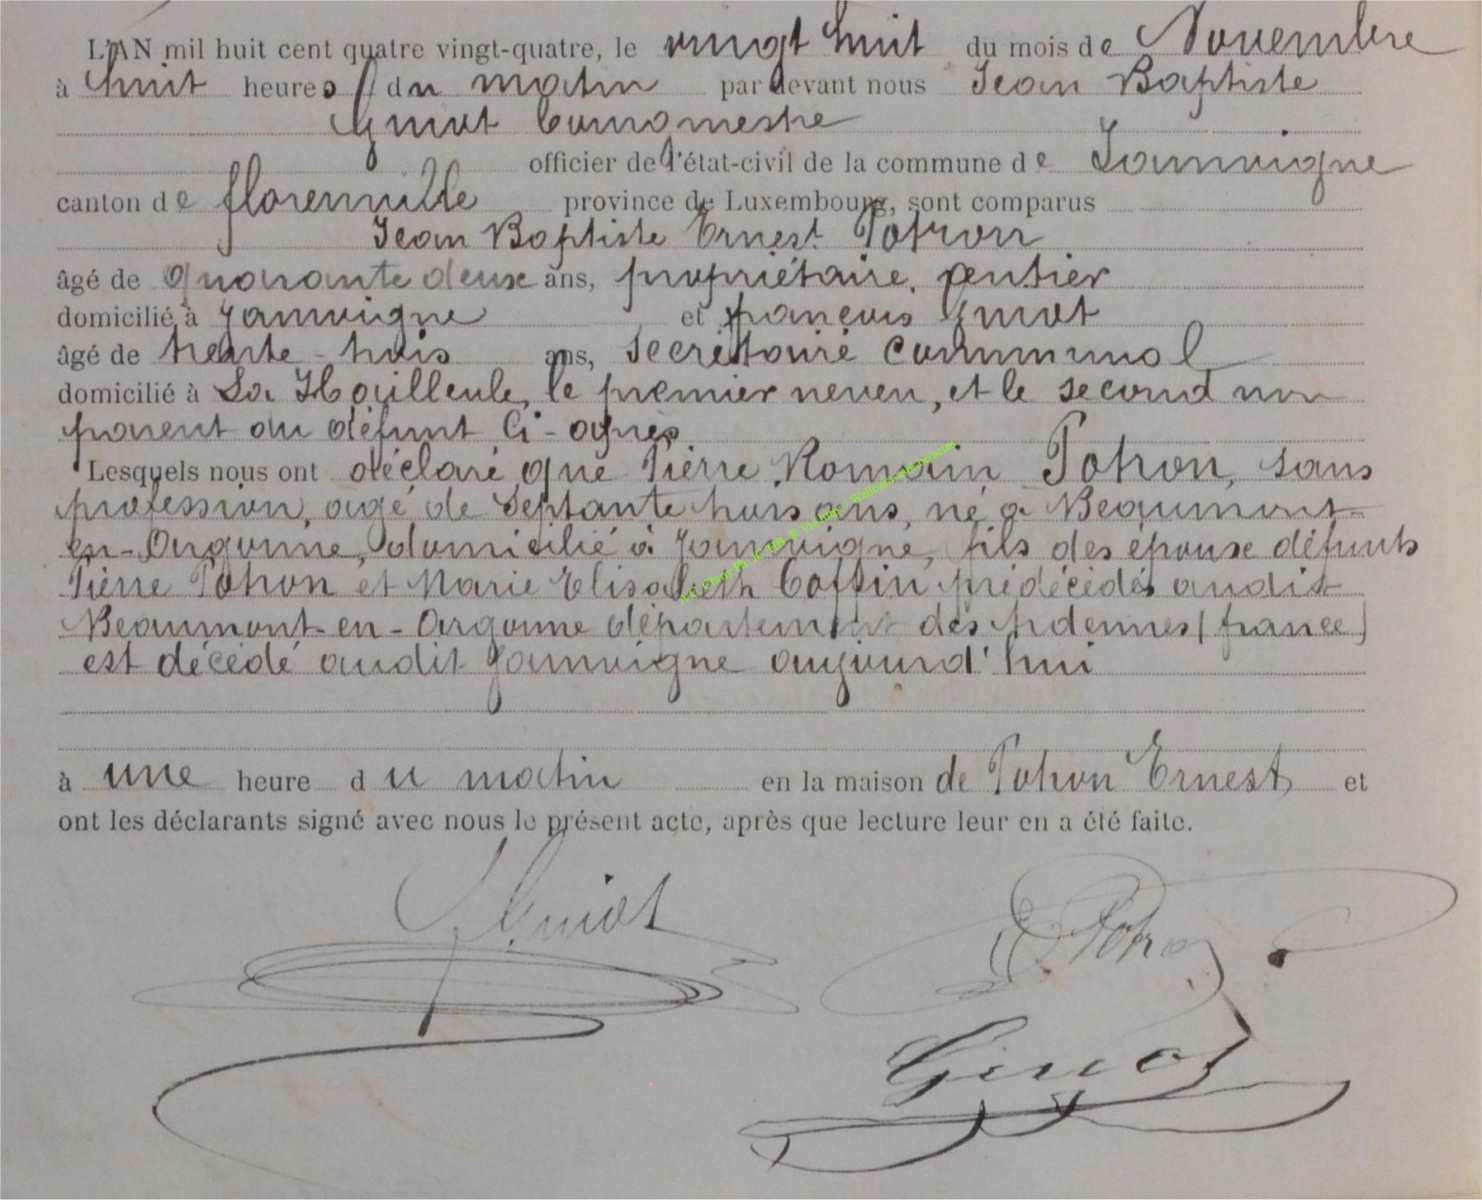 L'AN mil huit cent quatre vingt-quatre, le vingt huit du mois de Novembre
à huit heures du matin par devant nous Jean Baptiste
Guiot bourgmestre
officier de l'état-civil de la commune de Jamoigne
canton de florenville province de Luxembourg, sont comparus
Jean Baptiste Ernest Potron
âgé de quarante deux ans, propriétaire, rentier
domicilié à Jamoigne et françois Guiot
âgé de trente-trois ans, secrétaire communal
domicilié à La Hailleule, le premier neveu, et le second non
parent au défunt ci-après
Lesquels nous ont déclaré que Pierre Romain Potron, sans
profession, agé de septante trois ans, né à Beaumont-
en-Argonne, domicilié à Jamoigne, fils des époux défunts
Pierre Potron et Marie Elisabeth Coffin prédécédés audit
Beaumont-en-Argonne département des Ardennes (france)
est décédé audit Jamoigne aujourd'hui
à une heure du matin en la maison de Potron Ernest, et
ont les déclarants signé avec nous le présent acte, après que lecture leur en a été faite.
Guiot
E Potron
Guiot